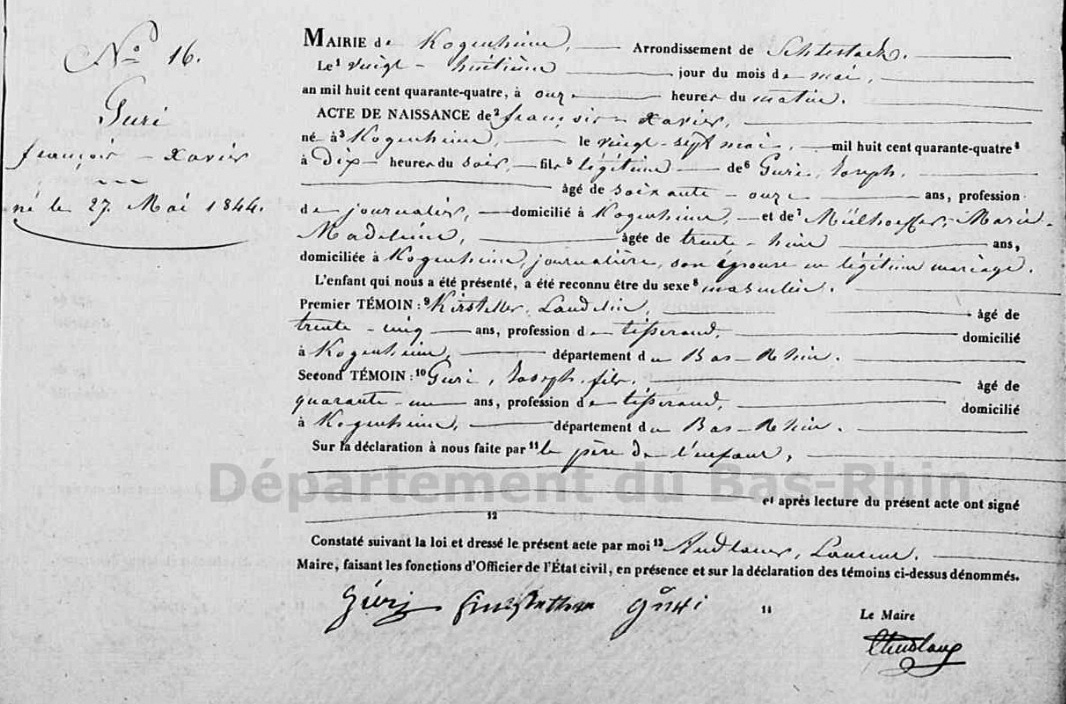 N° 16.
Guri
françois - xavier
né le 27. Mai 1844.
MAIRIE de Kogenheim, Arrondissement de Schlestadt.
Le 1 vingt - huitième jour du mois de mai,
an mil huit cent quarante-quatre, à onze heures du matin.
ACTE DE NAISSANCE de 2 françois - xavier,
né à 3 Kogenheim, le vingt-sept mai, mil huit cent quarante-quatre 4
à Dix heures du soir, fils 5 légitime de 6 Guri, Joseph.
âgé de soixante - onze ans, profession
de journalier, domicilié à Kogenheim, et de 7 Mülhoeffer, Marie-
Madeleine, âgée de trente - ans,
domiciliée à Kogenheim, journalière, son épouse en légitime mariage.
L'enfant qui nous a été présenté, a été reconnu être du sexe 8 masculin.
Premier TÉMOIN : 9 Landelin, âgé de
trente - cinq ans, profession de tisserand, domicilié
à Kogenheim, département du Bas-Rhin.
Second TÉMOIN : 10 Guri, Joseph, fils, âgé de
quarante - un ans, profession de tisserand, domicilié
à Kogenheim, département du Bas-Rhin.
Sur la déclaration à nous faite par 11 le père de l'enfant,
Département du Bas-Rhin
et après lecture du présent acte ont signé
12
Constaté suivant la loi et dressé le présent acte par moi 13 Andlauer, Laurent.
Maire, faisant les fonctions d'Officier de l'État civil, en présence et sur la déclaration des témoins ci-dessus dénommés.
14
Le Maire